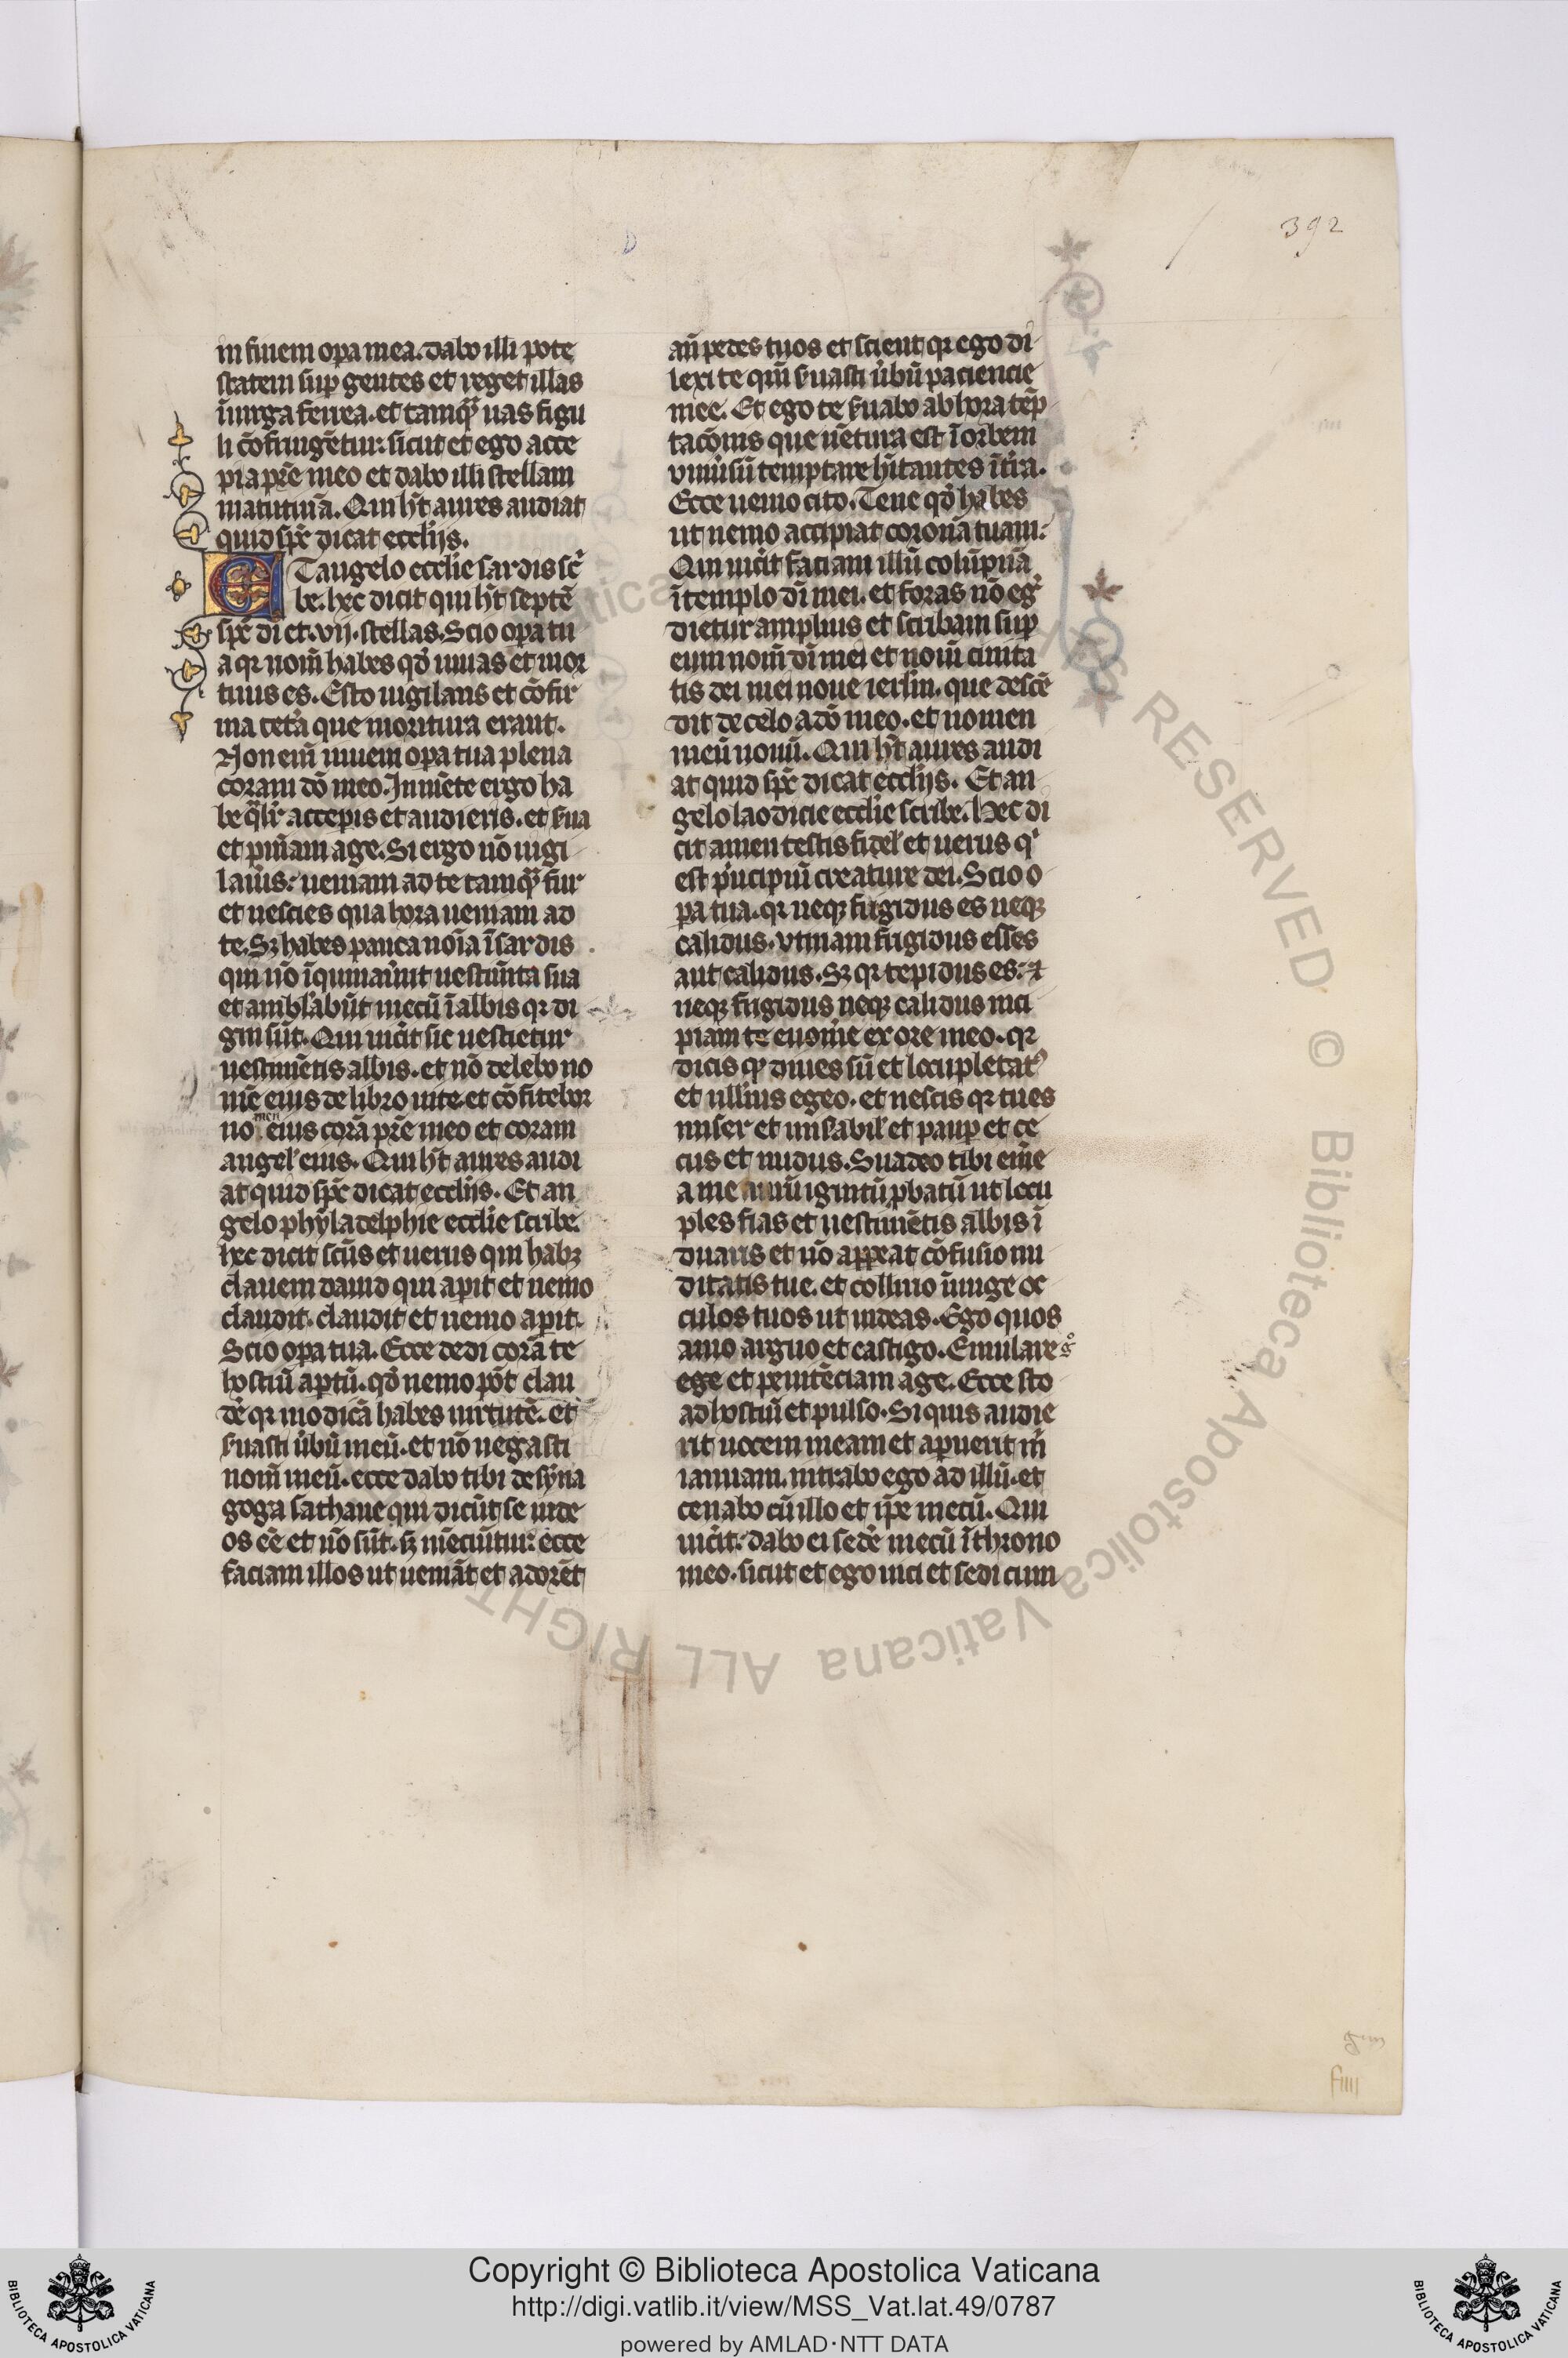 392
in finem opa mea. dabo illi pote
statem sup gentes et reget illas
ī uirga ferrea. et tamqͣ uas figu
li cōfringētur. sicut et ego acce
pi a pr̄e meo et dabo illi stellam
matutinā. Qui hꝫ aures audiat
quid sp̄c dicat eccl̄ijs.
ET angelo eccl̄ie sardis sc̄
be. hec dicit qui ht̄ septē
sp̄c di et. vij. stellas. Scio opa tu
a qꝛ nom̄ habes qd̄ uiuas et mor
tuus es. Esto uigilans et cōfir
ma cet̄a que moritura erant.
Non em̄ inuem opa tua plena
coram dō meo. In mēte ergo ha
be qͣlr̄ acceperis et audieris. et s̄ua
et pn̄iam age. Si ergo nō uigi
lau̾is. ueniam ad te tamqͣ fur
et nescies qua hora ueniam ad
te. Sꝫ habes pauca noīa ī sardis
qui nō īquinau̾nt uestim̄ta sua
et ambl̾abūt mecū ī albis qꝛ di
gni sūt. Qui uic̾it sic uestietur
uestimētis albis. et nō delebo no
mē eius de libro uite. et cōfitebor
nomen eius corā pr̄e meo et coram
angel̾ eius. Qui ht̄ aures audi
at quid sp̄c dicat eccl̄ijs. Et an
gelo phyladelphie eccl̄ie scribe.
hec dicit scūs et uerus qui habꝫ
clauem dauid qui apit et nemo
claudit. claudit et nemo apit.
Scio opa tua. Ecce dedi corā te
hostiū aptū. qd̄ nemo pōt clau
de̾ qꝛ modicā habes uirtutē. et
s̄uasti u̾bū meū. et nō negasti
nom̄ meū. ecce dabo tibi de syna
goga sathane qui dicūt se iude
os eē et nō sūt. sꝫ mēciūtur. ecce
faciam illos ut ueniāt et adorēt
an̄ pedes tuos et scient qꝛ ego di
lexi te qm̄ s̄uasti u̾bū paciencie
mee. Et ego te s̄uabo ab hora tēp
tacōnis que uētura est ī orbem
vniu̾sū temptare hītantes ī tr̄a.
Ecce uenio cito. Tene qd̄ habes
ut nemo accipiat coronā tuam.
Qui uic̾it faciam illū colūpnā
ī templo dī mei. et foras nō eg̾
dietur amplius et scribam sup
eum nom̄ dī mei et nom̄ ciuita
tis dei mei noue ierl̄m. que descē
dit de celo a dō meo. et nomen
meū nouū. Qui ht̄ aures audi
at quid sp̄c dicat eccl̄ijs. Et an
gelo laodicie eccl̄ie scribe. Hec di
cit amen testis fidel̾ et uerus qͥ
est pͥncipiū creature dei. Scio o
pa tua. qꝛ neqꝫ frigidus es neqꝫ
calidus. vtinam frigidus esses
aut calidus. Sꝫ qꝛ tepidus es. ⁊
neqꝫ frigidus neqꝫ calidus inci
piam te euom̾e ex ore meo. qꝛ
dicis qꝫ diues sū et locupletatꝰ
et nullius egeo. et nescis qꝛ tu es
miser et mis̾abil̾ et paup et ce
cus et nudus. Suadeo tibi em̾e
a me ignitū pbatū ut locu
ples fias et uestimētis albis ī
duaris et nō appeat cōfusio nu
ditatis tue. et collirio iūnge oc
culos tuos ut uideas. Ego quos
amo arguo et castigo. Emulare gͦ
ege et penitēciam age. Ecce sto
ad hostiū et pulso. Si quis audie
rit uocem meam et apuerit m̄
ianuam. intrabo ego ad illū. et
cenabo cū illo et ip̄e mecū. Qui
uic̾it. dabo ei sede̾ mecū ī throno
meo. sicut et ego uici et sedi cum
Copyright © Biblioteca Apostolica Vaticana
http://digi.vatlib.it/view/MSS_Vat.lat.49/0787
powered by AMLAD·NTT DATA
BIBLIOTECA APOSTOLICA VATICANA
BIBLIOTECA APOSTOLICA VATICANA
ALL RIGHTS RESERVED © Biblioteca Apostolica Vaticana